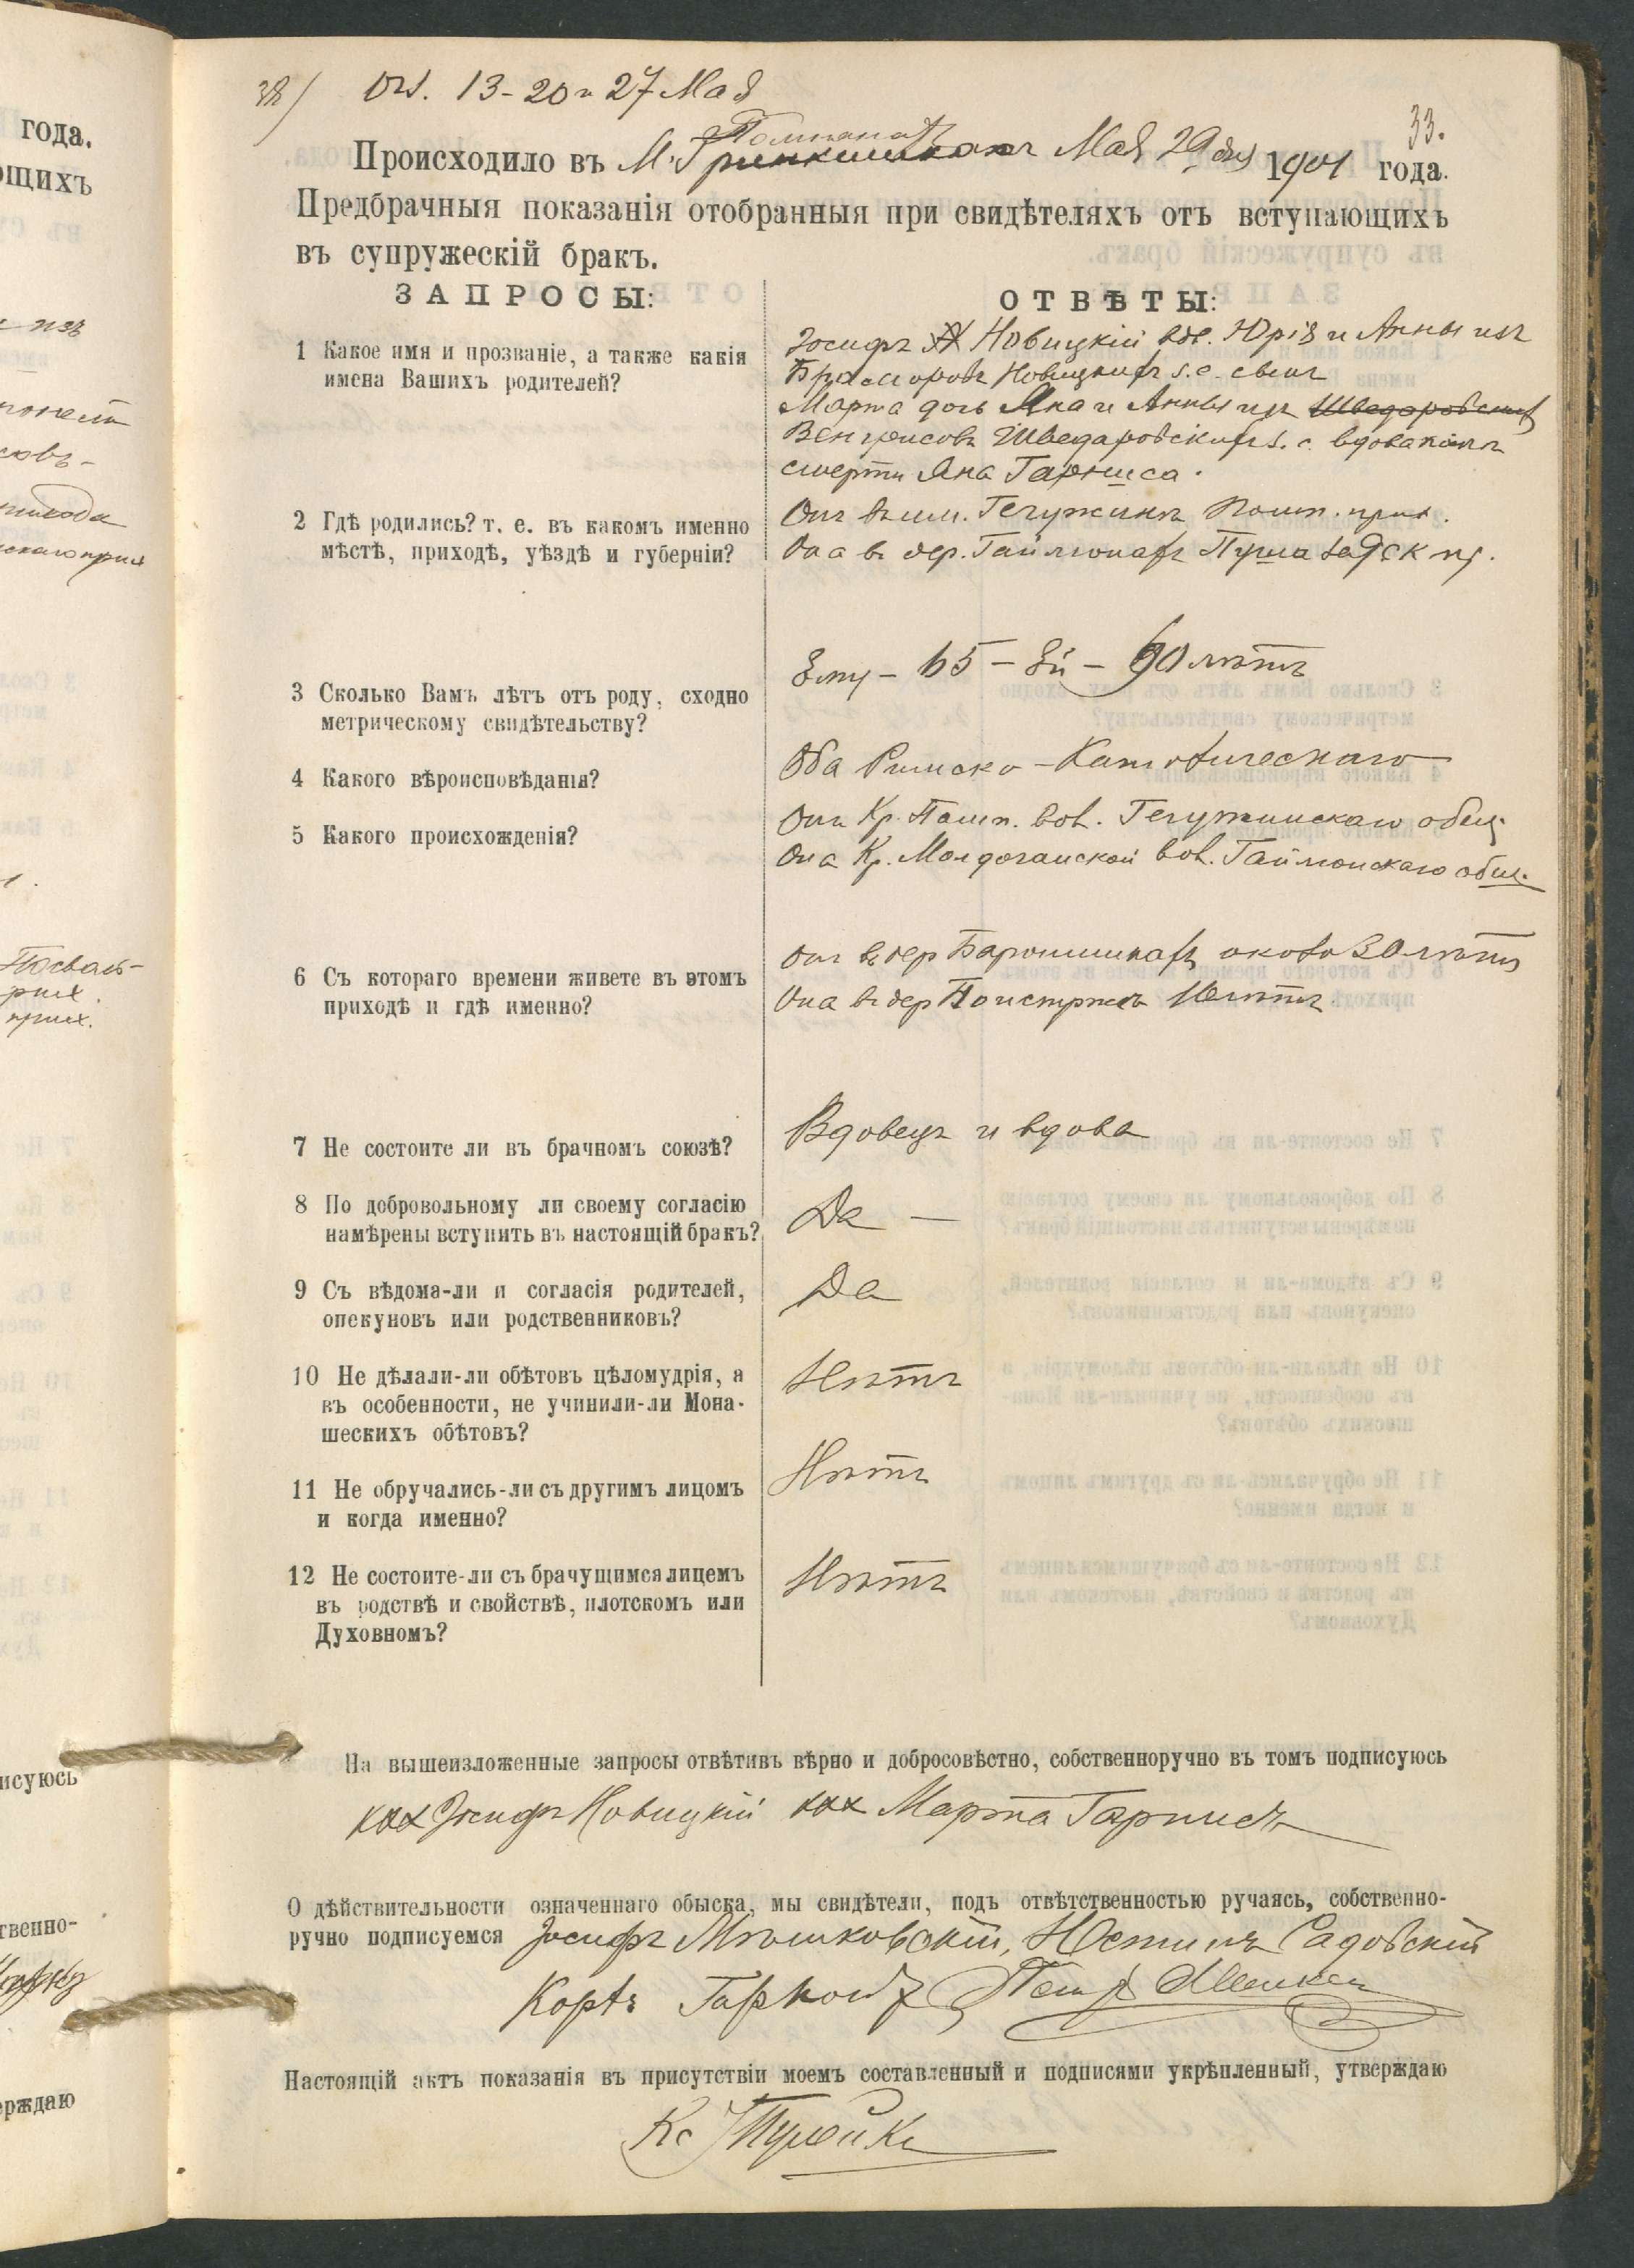 38) Ог. 13 - 20 и 27 Мая
33.
Помпянахъ
Происходило въ М. Гринкишкахъ Мая 29 дня 1901 года.
Предбрачныя показанія отобранныя при свидѣтеляхъ отъ вступающихъ
въ супружескій бракъ.
ЗАПРОСЫ:
ОТВѢТЫ:
1 Какое имя и прозваніе, а также какія
имена Вашихъ родителей?
Іосифъ Новицкій вдв. Юрія и Анны изъ
Новицкихъ з. с. сынъ
Марта дочь Яна и Анны изъ Шведаровскихъ
Венгрисовъ Шведаровскихъ з. с. вдова
смерти Яна Гарниса.
2 Гдѣ родились? т. е. въ какомъ именно
мѣстѣ, приходѣ, уѣздѣ и губерніи?
Онъ въ им. Гегужинъ Помп. прих.
Она въ дер. Гайлюнахъ
3 Сколько Вамъ лѣтъ отъ роду, сходно
метрическому свидѣтельству?
Ему - 65 - Ей - 60 лѣтъ
4 Какого вѣроисповѣданія?
Оба Римско-Католическаго
5 Какого происхожденія?
Онъ Кр. Помп. вол. Гегужинскаго общ.
Она Кр. вол. Гайлюнскаго общ.
6 Съ котораго времени живете въ этомъ
приходѣ и гдѣ именно?
Онъ въ дер около 30 лѣтъ
Она въ дер Поистржа 10 лѣтъ
7 Не состоите ли въ брачномъ союзѣ?
Вдовецъ и вдова
8 По добровольному ли своему согласію
намѣрены вступить въ настоящій бракъ?
Да —
9 Съ вѣдома-ли и согласія родителей,
опекуновъ или родственниковъ?
Да
10 Не дѣлали-ли обѣтовъ цѣломудрія, а
въ особенности, не учинили-ли Мона-
шескихъ обѣтовъ?
Нѣтъ
11 Не обручались-ли съ другимъ лицомъ
и когда именно?
Нѣтъ
12 Не состоите-ли съ брачущимся лицемъ
въ родствѣ и свойствѣ, плотскомъ или
Духовномъ?
Нѣтъ
На вышеизложенные запросы отвѣтивъ вѣрно и добросовѣстно, собственноручно въ томъ подписуюсь
ххх Іосифъ Новицкій ххх Марта Гарнисъ
О дѣйствительности означеннаго обыска, мы свидѣтели, подъ отвѣтственностью ручаясь, собственно-
ручно подписуемся Іосифъ Мѣшковскій, Юстинъ Садовскій
Настоящій актъ показанія въ присутствіи моемъ составленный и подписями укрѣпленный, утверждаю